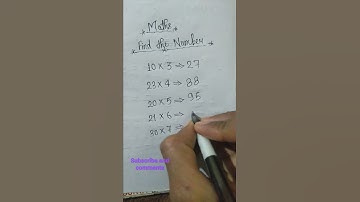 Maths
Find the Number
10 × 3 ⇒ 27
23 × 4 ⇒ 88
20 × 5 ⇒ 95
21 × 6 ⇒
× 7 ⇒
Subscribe and
comments